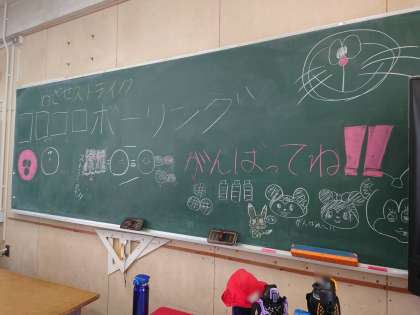 めざせストライク
コロコロボーリング
がんばってね!!
がんばれ〜!!